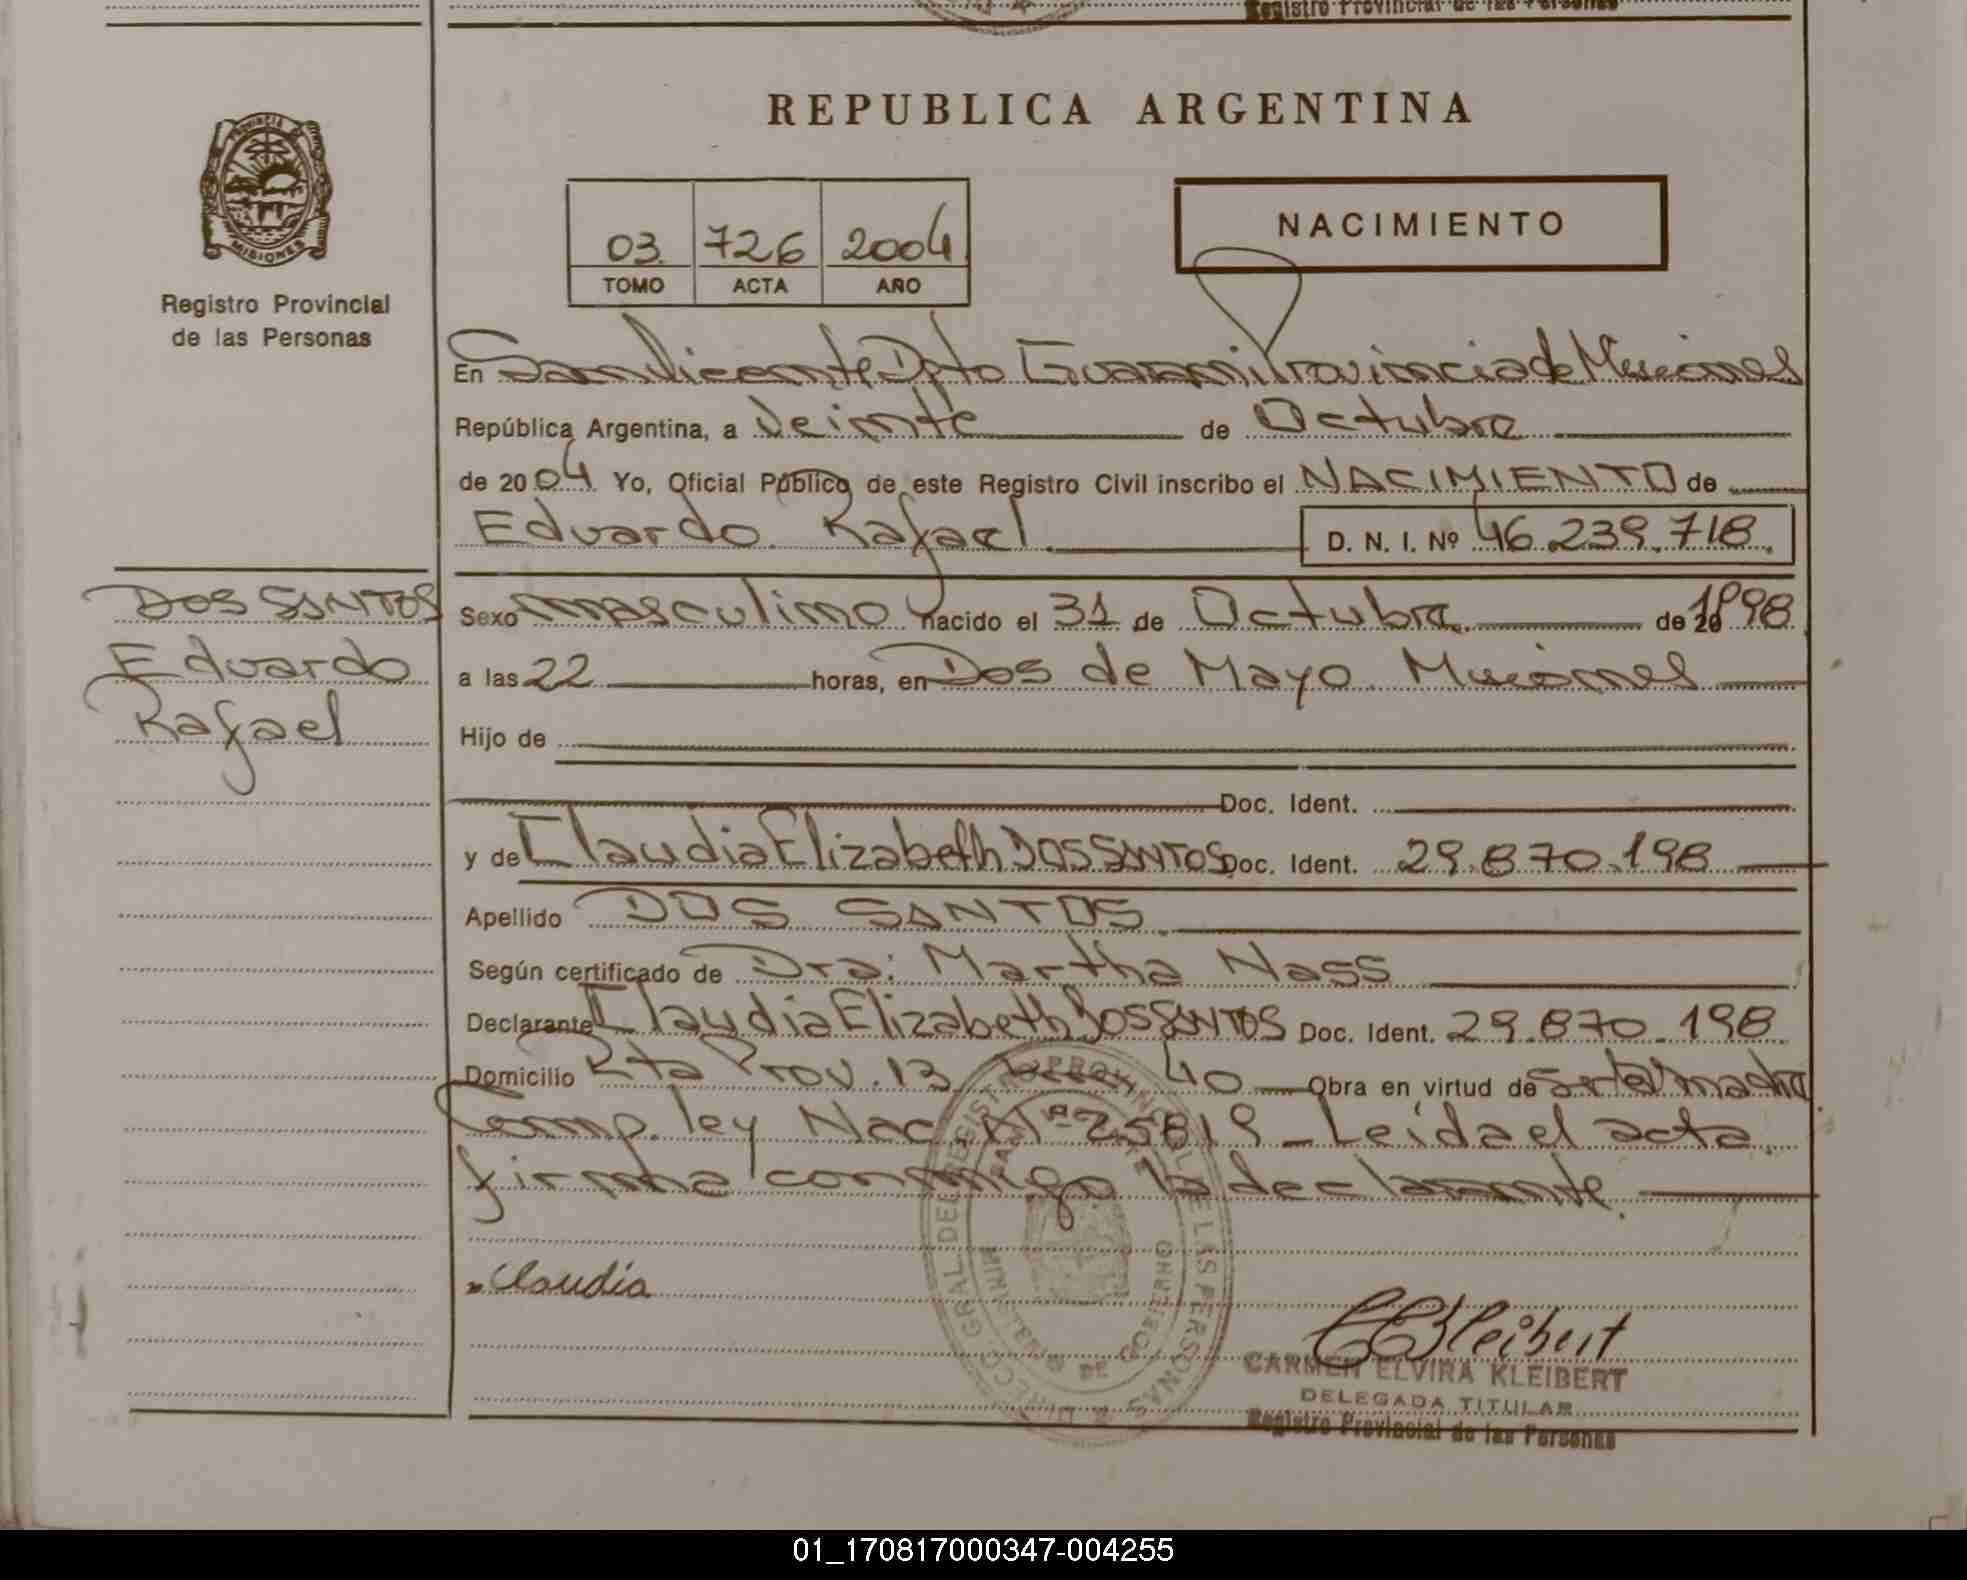 Registro Provincial de las Personas
PROVINCIA DE
MISIONES
Registro Provincial
de las Personas
REPUBLICA ARGENTINA
03 726 2004
TOMO ACTA AÑO
NACIMIENTO
En San Vicente Dpto Guaraní Provincia de Misiones
República Argentina, a Veinte de Octubre
de 2004 Yo, Oficial Público de este Registro Civil inscribo el NACIMIENTO de
Eduardo Rafael D. N. I. Nº 46.239.718.
DOS SANTOS
Eduardo
Rafael
Sexo masculino nacido el 31 de Octubre de 1998
a las 22 horas, en Dos de Mayo Misiones
Hijo de
Doc. Ident.
y de Claudia Elizabeth DOS SANTOS Doc. Ident. 29.870.198
Apellido DOS SANTOS
Según certificado de Dra: Martha Nass
Declarante Claudia Elizabeth DOS SANTOS Doc. Ident. 29.870.198
Domicilio Rta Prov. 13 40 Obra en virtud de madre
Comp. ley Nac. Nº 25819 - Leída el acta
firma conmigo la declarante.
Claudia
DIRECC. GRAL. DEL REGISTRO PROVINCIAL DE LAS PERSONAS
MINISTERIO DE GOBIERNO
CKleibert
CARMEN ELVIRA KLEIBERT
DELEGADA TITULAR
Registro Provincial de las Personas
01_170817000347-004255